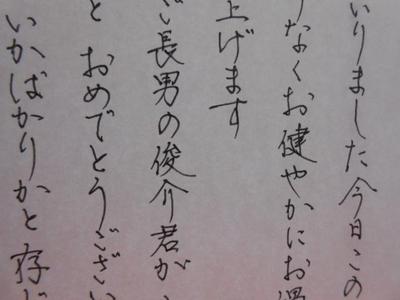 いりました今日この
なくお健やかにお過
上げます
長男の俊介君が
と おめでとうござい
いかばかりかと存じ